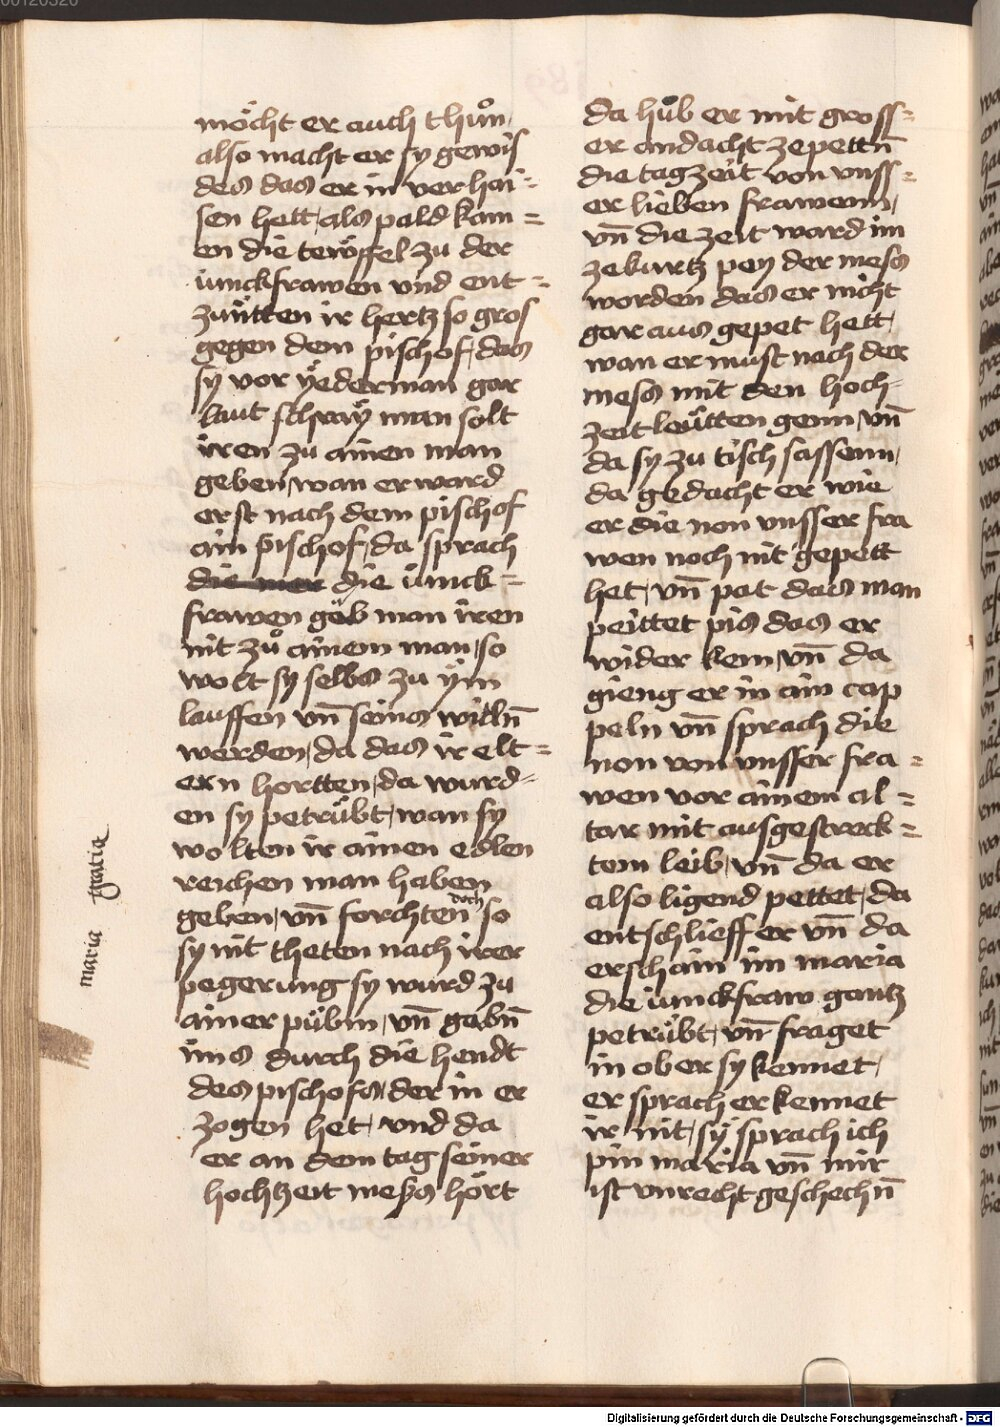 möcht er auch thůn,
also macht er sy gewis
des das er in verhai=
sen hett, als pald kam=
en die tewffel zu der
iunckfrawen vnd ent=
zuntten ir hertz so gros
gegen dem pischof, das
sy vor yederman gar
laut schray man solt
iren zu ainen man
geben, wan er ward
erst nach dem pischof
ain pischof, da sprach
die iunck=
frawen geb man iren
nit zů ainem man, so
wolt sy selbs zu ym
lauffen vn̄ seins willn̄
werden, da das ir elt=
ern hortten, da wurd=
en sy petrübt, wan sy
wolten ir ainen edlen
reichen man haben
geben, vn̄ forchten doch so
sy nit theten nach irer
pegerung sy wurd zu
ainer pübin, vn̄ gabn̄
ims durch die hendt
des pischofs, der in er
zogen het, vnd da
er an dem tag seiner
hochtzeit mess hört
maria gratia
da hůb er mit gross=
er andacht ze pettn̄
die tagzeit von vnss=
er lieben frawenn,
vn̄ die zeit ward im
ze kurtz pey der mess
worden das er nicht
gar aus gepet hett,
wan er must nach der
mess mit den hoch=
zeit leütten genn, vn̄
da sy zu tisch sassenn,
da gedacht er wie
er die non vnsser fra
wen noch nit gepett
het, vn̄ pat das man
peittet pis das er
wider kem, vn̄ da
gieng er in ain cap
peln vn̄ sprach die
non von vnsser fra=
wen vor ainem al=
tar mit ausgestreck=
tem leib, vn̄ da er
also ligend pettet, da
entschlieff er vn̄ da
erschain im maria
die iunckfraw gantz
petrübt, vn̄ fraget
in ob er sy kennet,
er sprach er kennet
ir nit, sy sprach ich
pin maria vn̄ mir
ist vnrecht geschechn̄
Digitalisierung gefördert durch die Deutsche Forschungsgemeinschaft - DFG